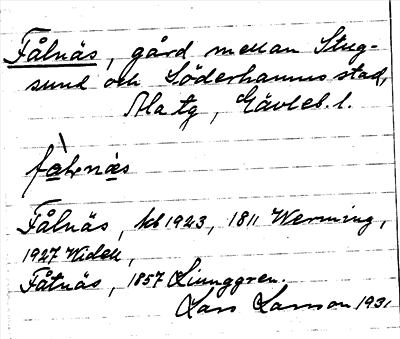 Fålnäs, gård mellan Stug-
sund och Söderhamns stad,
Ala tg, Gävleb. l.
fàlnä̀s
Fålnäs, kb 1923, 1811 Werming,
1927 Widell,
Fåtnäs, 1857 Ljunggren.
Lars Larson 1931